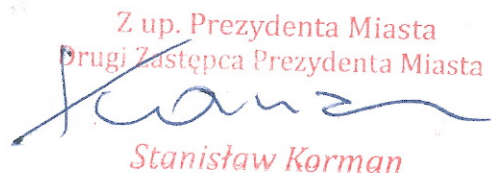 Z up. Prezydenta Miasta
Drugi Zastępca Prezydenta Miasta
Stanisław Korman